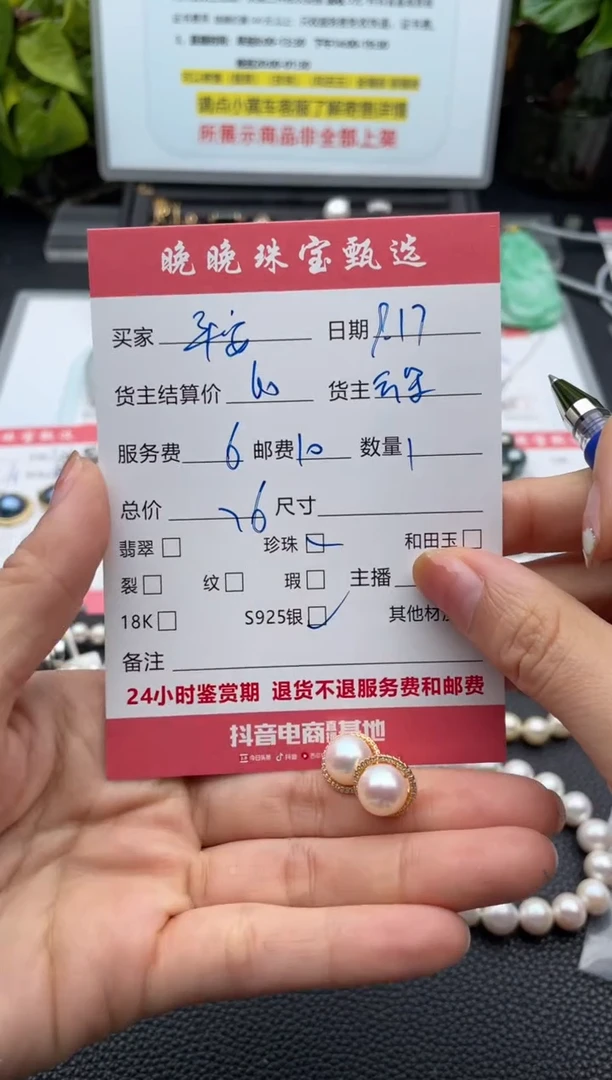 遇点小黄车客服了解寄售详情
所展示商品非全部上架
晚晚珠宝甄选
买家 平安 日期 8.17
货主结算价 60 货主
服务费 6 邮费 10 数量 1
总价 76 尺寸
翡翠 珍珠 和田玉
裂 纹 瑕 主播
18K S925银 其他材
备注
24小时鉴赏期 退货不退服务费和邮费
抖音电商 基地
今日头条 抖音